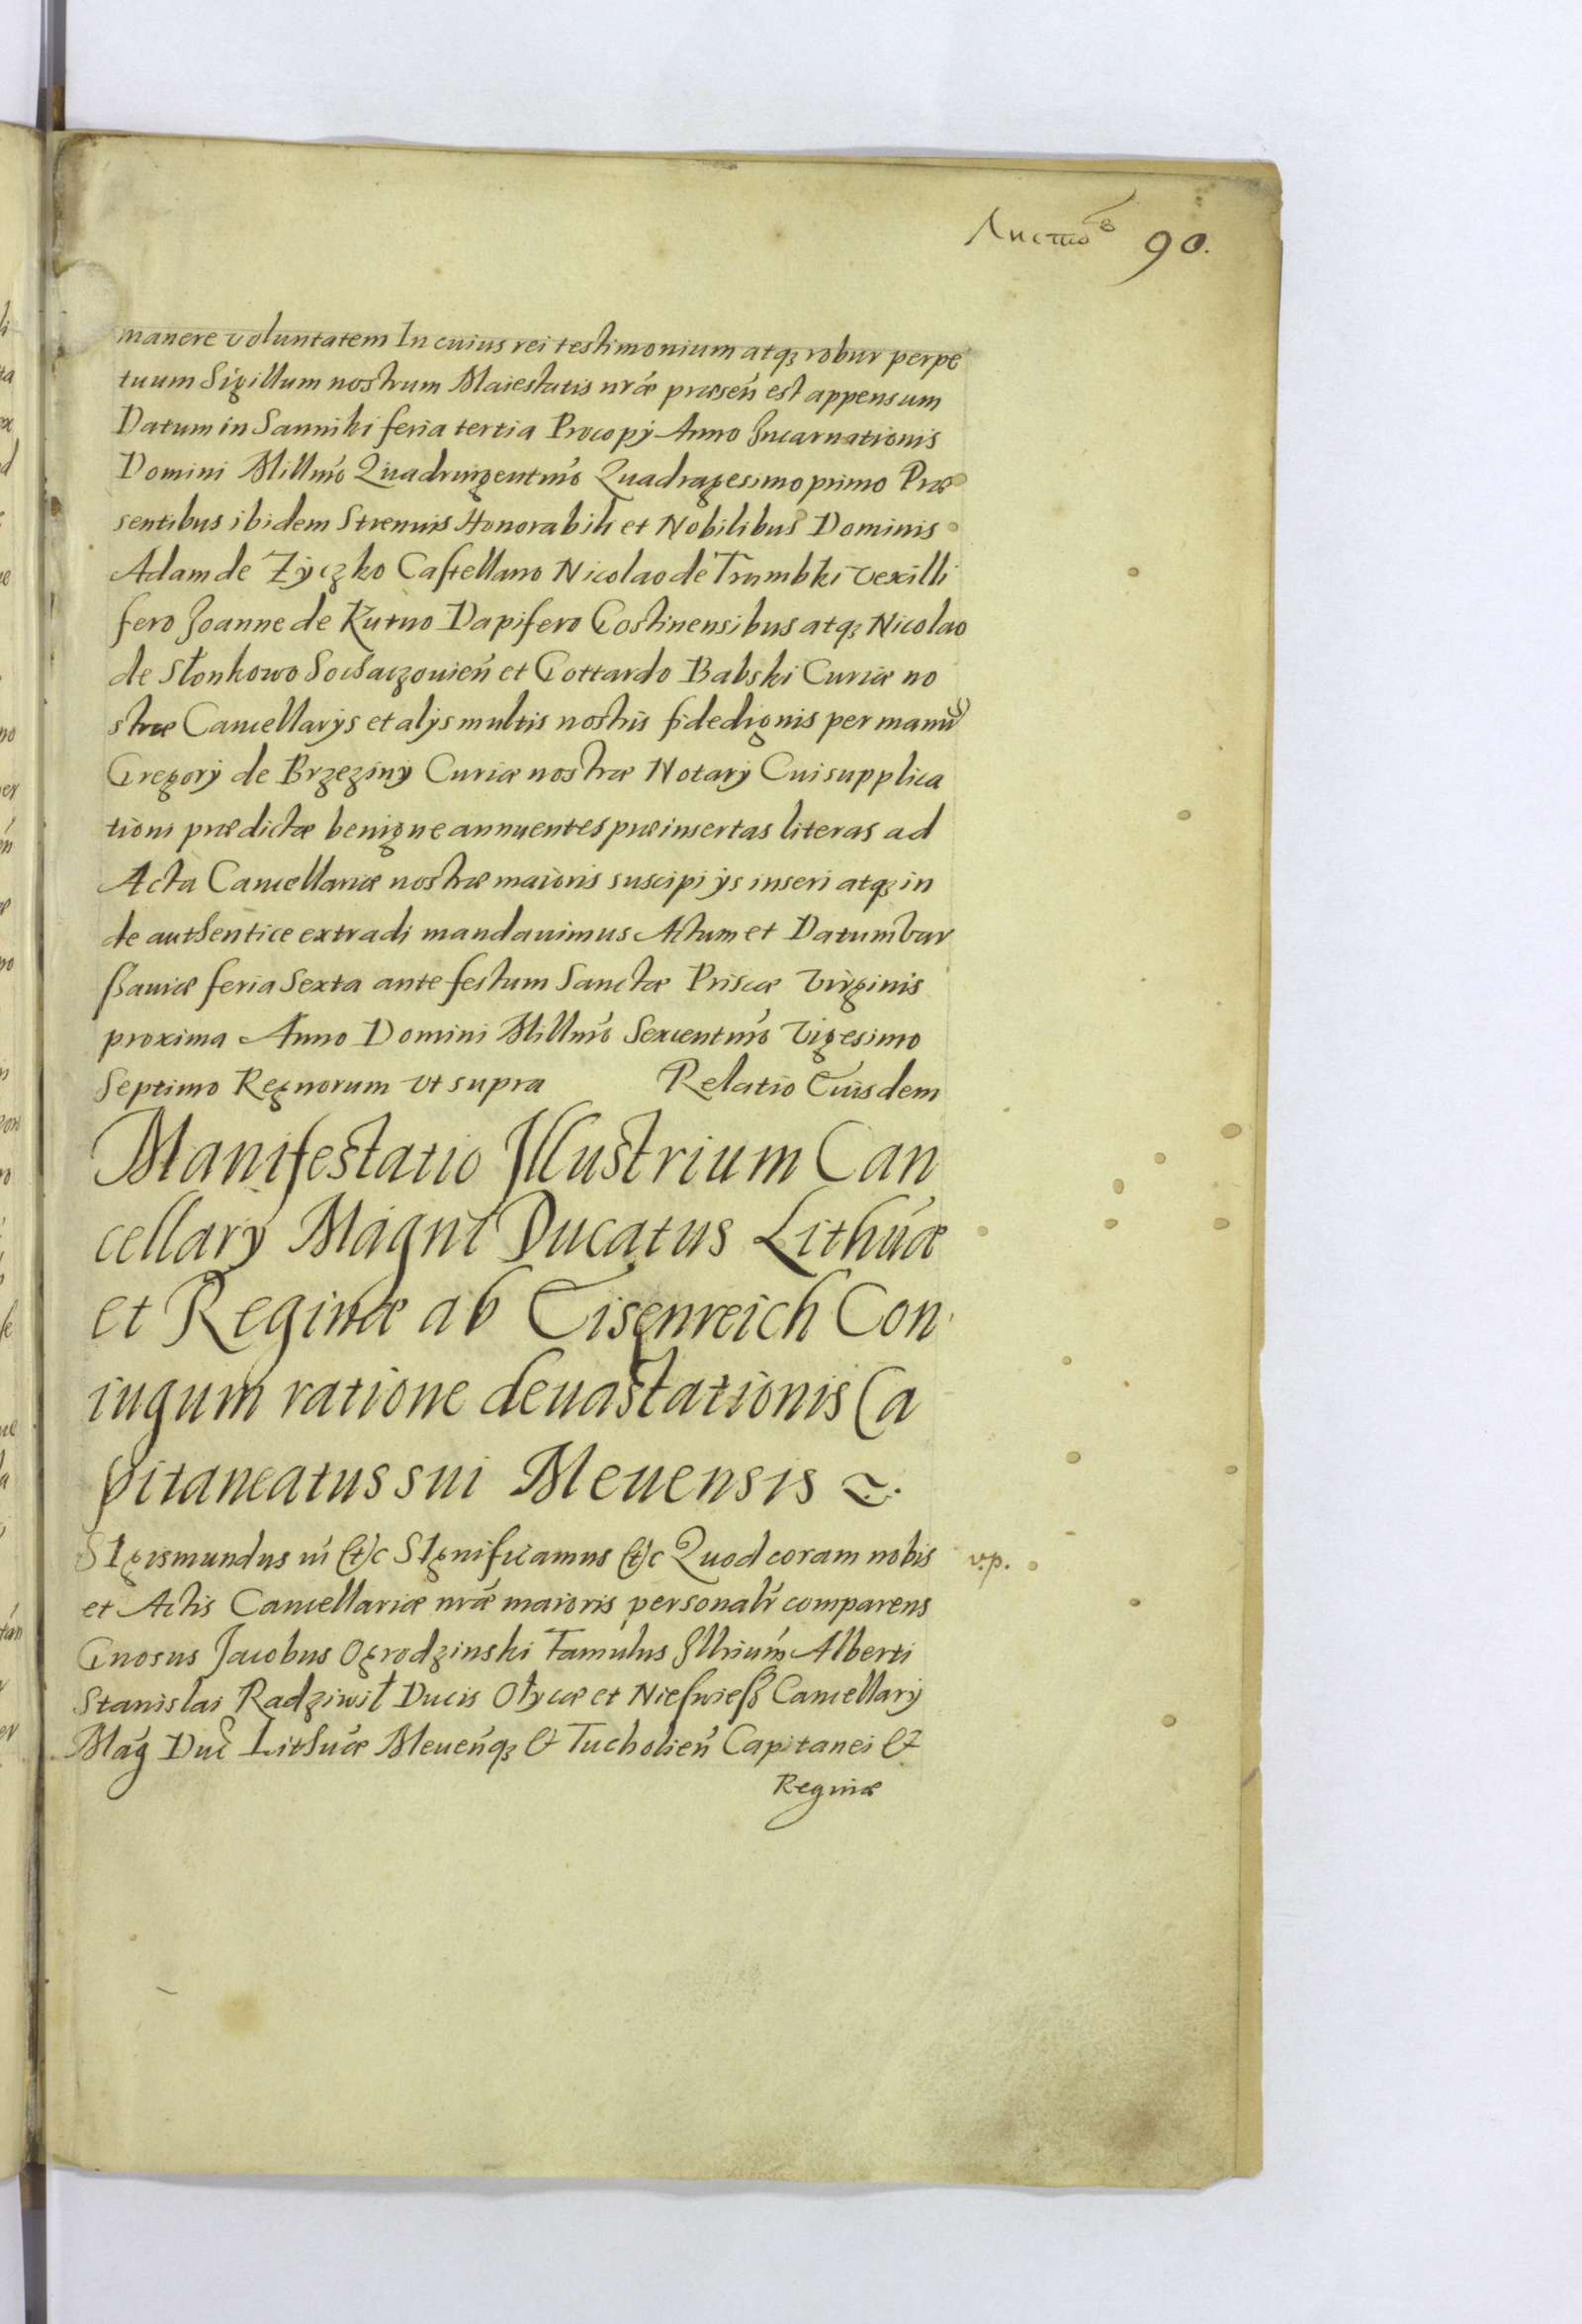 Листов 90.
manere voluntatem In cuius rei testimonium atq₃ robur perpe
tuum Sigillum nostrum Maiestatis nræ præsen̄ est appensum
Datum in Sanniki feria tertia Procopÿ Anno Incarnationis
Domini Millmō Quadringentmō Quadragesimo primo Præ
sentibus ibidem Strenuis Honorabili et Nobilibus Dominis
Adam de Zÿczko Castellano Nicolao de Trumbki vexilli
fero Joanne de Kutno Dapifero Gostinensibus atq₃ Nicolao
de Słonkowo Sochaczouien̄ et Gottardo Babski Curiæ no
stræ Cancellarÿs et alÿs multis nostris fidedignis per manu͡s
Gregorÿ de Brzezinÿ Curiæ nostræ Notarÿ Cui supplica
tioni prædictæ benigne annuentes præinsertas literas ad
Acta Cancellariæ nostræ maioris suscipi ÿs inseri atq₃ in
de authentice extradi mandauimus Actum et Datum Var
ßauiæ feria Sexta ante festum Sanctæ Priscæ Virginis
proxima Anno Domini Millmō Sexcentmō Vigesimo
Septimo Regnorum vt supra Relatio Eiusdem
Manifestatio Illustrium Can
cellarÿ Magni Ducatus Lithuæ
et Reginæ ab Eisenreich Con
iugum ratione deuastationis Ca
pitaneatus sui Meuensis
SIgismundus iii &c SIgnificamus &c Quod coram nobis
v.p.
et Actis Cancellariæ nræ maioris personalr̄ comparens
Gnosus Jacobus Ogrodzinski Famulus Illrium̄ Alberti
Stanislai Radziwił Ducis Ołycæ et Nieswieß Cancellarÿ
Maḡ Duc̄ Lithuæ Meuen̄q₃ & Tucholien̄ Capitanei &
Reginæ